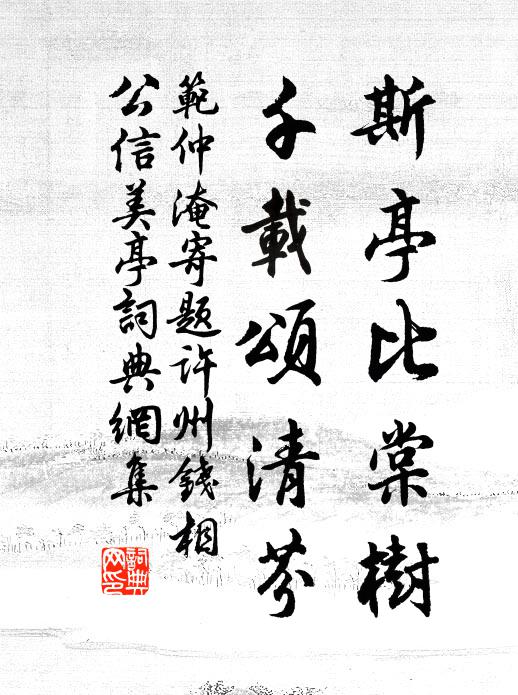 斯亭比棠樹
千載頌清芬
範仲淹寄題許州錢相
公信美亭詞典網集
詞典
网印